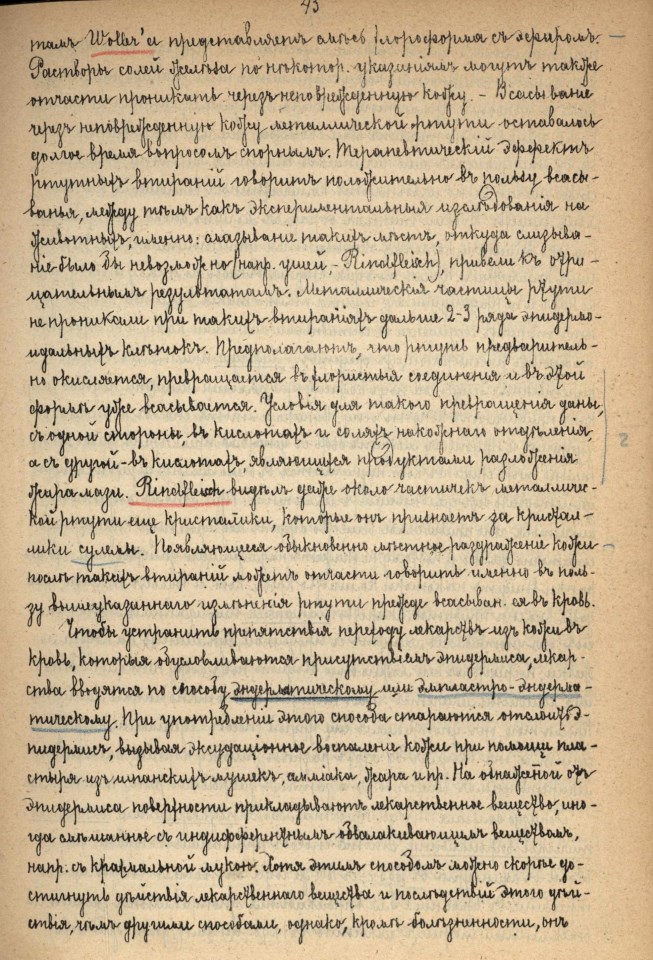 43
тамъ Woller'а представляетъ смѣсь хлороформа съ эфиромъ. –
Растворы солей желѣза по нѣкотор. указаніямъ могутъ также
отчасти проникать черезъ неповрежденную кожу. – Всасываніе
черезъ неповрежденную кожу металлической ртути оставалось
долгое время вопросомъ спорнымъ. Терапевтическій эффектъ
ртутныхъ втираній говоритъ положительно въ пользу всасы-
ванья, между тѣмъ какъ экспериментальныя изслѣдованія на
животныхъ, именно: смазываніе такихъ мѣстъ, откуда слизыва-
ніе было бы невозможно (напр. ушей, – Rindfleisch), привели къ отри-
цательнымъ результатамъ. Металлическія частицы ртути
не проникали при такихъ втираніяхъ дальше 2-3 ряда эпидермо-
идальныхъ клѣтокъ. Предполагаютъ, что ртуть предваритель-
но окисляется, превращается въ хлористыя соединенія и въ этой
формѣ уже всасывается. Условія для такого превращенія даны,
съ одной стороны, въ кислотахъ и соляхъ накожнаго отдѣленія,
а съ другой – въ кислотахъ, являющихся продуктами разложенія
жира мази. Rindfleisch видѣлъ даже около частичекъ металличес-
кой ртути еще кристалики, которые онъ признаетъ за кристал-
лики сулемы. Появляющееся обыкновенно мѣстное раздраженіе кожи –
послѣ такихъ втираній можетъ отчасти говорить именно въ поль-
зу вышеуказаннаго измѣненія ртути прежде всасыван. ея въ кровь.
Чтобы устранить препятствія переходу лекарствъ изъ кожи въ
кровь, которыя обусловливаются присутствіемъ эпидермиса, лекар-
ства вводятся по способу эндерматическому или эмпластро-эндерма-
тическому. При употребленіи этого способа стараются отслоить э-
пидермисъ, вызывая эксудаціонное воспаленіе кожи при помощи пла-
стыря изъ шпанскихъ мушекъ, амміака, жара и пр. На обнаженной отъ
эпидермиса поверхности прикладываютъ лекарственное вещество, ино-
гда смѣшанное съ индифферентнымъ обвалакивающимъ веществомъ,
напр. съ крахмальной мукой. Хотя этимъ способомъ можно скорѣе до-
стигнуть дѣйствія лекарственнаго вещества и послѣдствій этого дѣй-
ствія, чѣмъ другими способами, однако, кромѣ болѣзненности, онъ